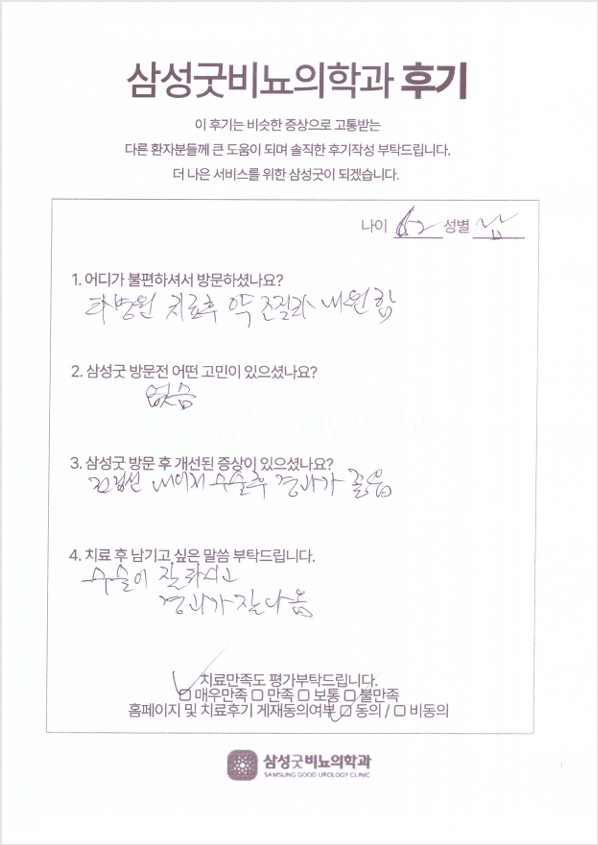 삼성굿비뇨의학과 후기
이 후기는 비슷한 증상으로 고통받는
다른 환자분들께 큰 도움이 되며 솔직한 후기작성 부탁드립니다.
더 나은 서비스를 위한 삼성굿이 되겠습니다.
나이 62 성별 남
1. 어디가 불편하셔서 방문하셨나요?
타병원 치료후 약 내원함
2. 삼성굿 방문전 어떤 고민이 있으셨나요?
없음
3. 삼성굿 방문 후 개선된 증상이 있으셨나요?
수술후 경과가 좋음
4. 치료 후 남기고 싶은 말씀 부탁드립니다.
수술이 잘
경과가 잘 나옴
치료만족도 평가부탁드립니다.
매우만족 만족 보통 불만족
홈페이지 및 치료후기 게재동의여부 동의 / 비동의
삼성굿비뇨의학과
SAMSUNG GOOD UROLOGY CLINIC